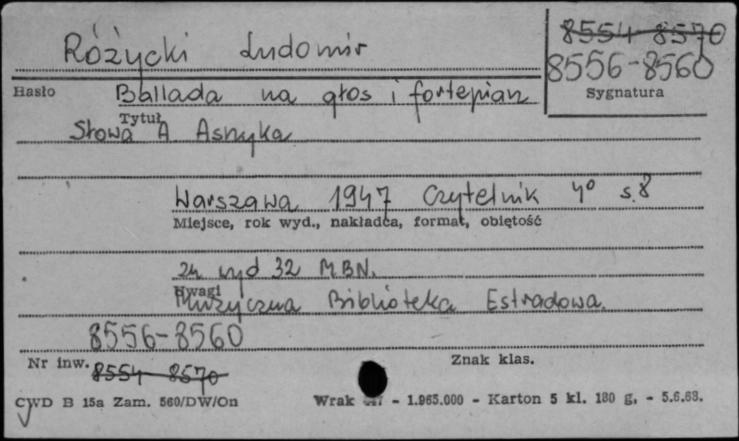 Różycki Ludomir
8554-8570
8556-8560
Sygnatura
Hasło
Ballada na głos i fortepian
Tytuł
Słowa A Asnyka
Warszawa 1947 Czytelnik 4° s.8
Miejsce, rok wyd., nakładca, format, objętość
zn wyd 32 M.B.N.
Uwagi
Muzyczna Biblioteka Estradowa.
8556-8560
Nr inw.
8554 8570
Znak klas.
CWD B 15a Zam. 560/DW/On
Wrak - 1.965.000 - Karton 5 kl. 180 g, - 5.6.63.